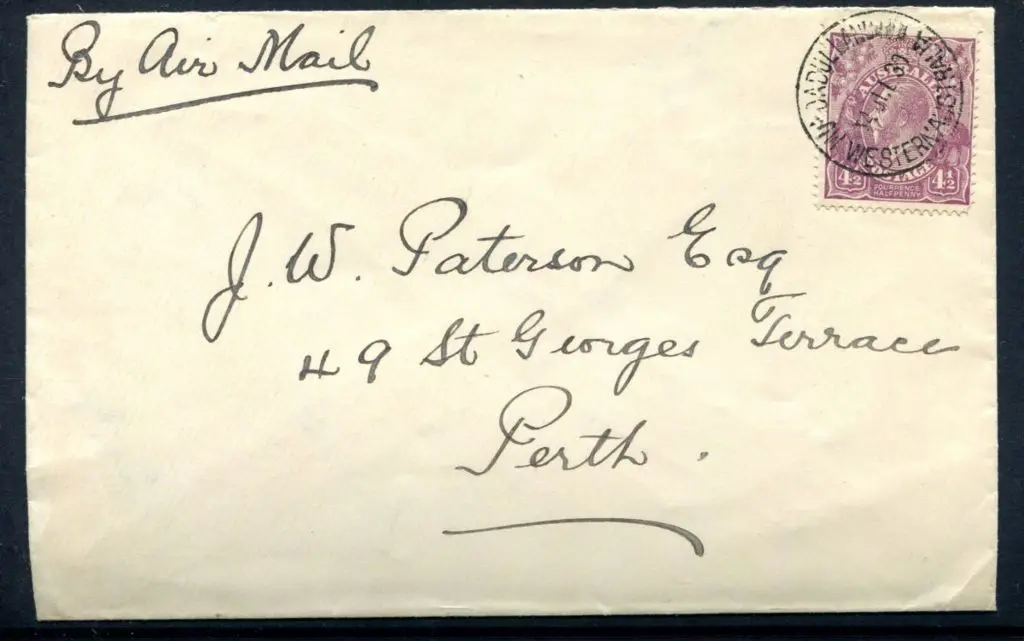 By Air Mail
AUSTRALIA
JU 30
WESTERN AUSTRALIA
POSTAGE
4½ FOURPENCE HALFPENNY 4½
J. W. Paterson Esq
49 St Georges Terrace
Perth.